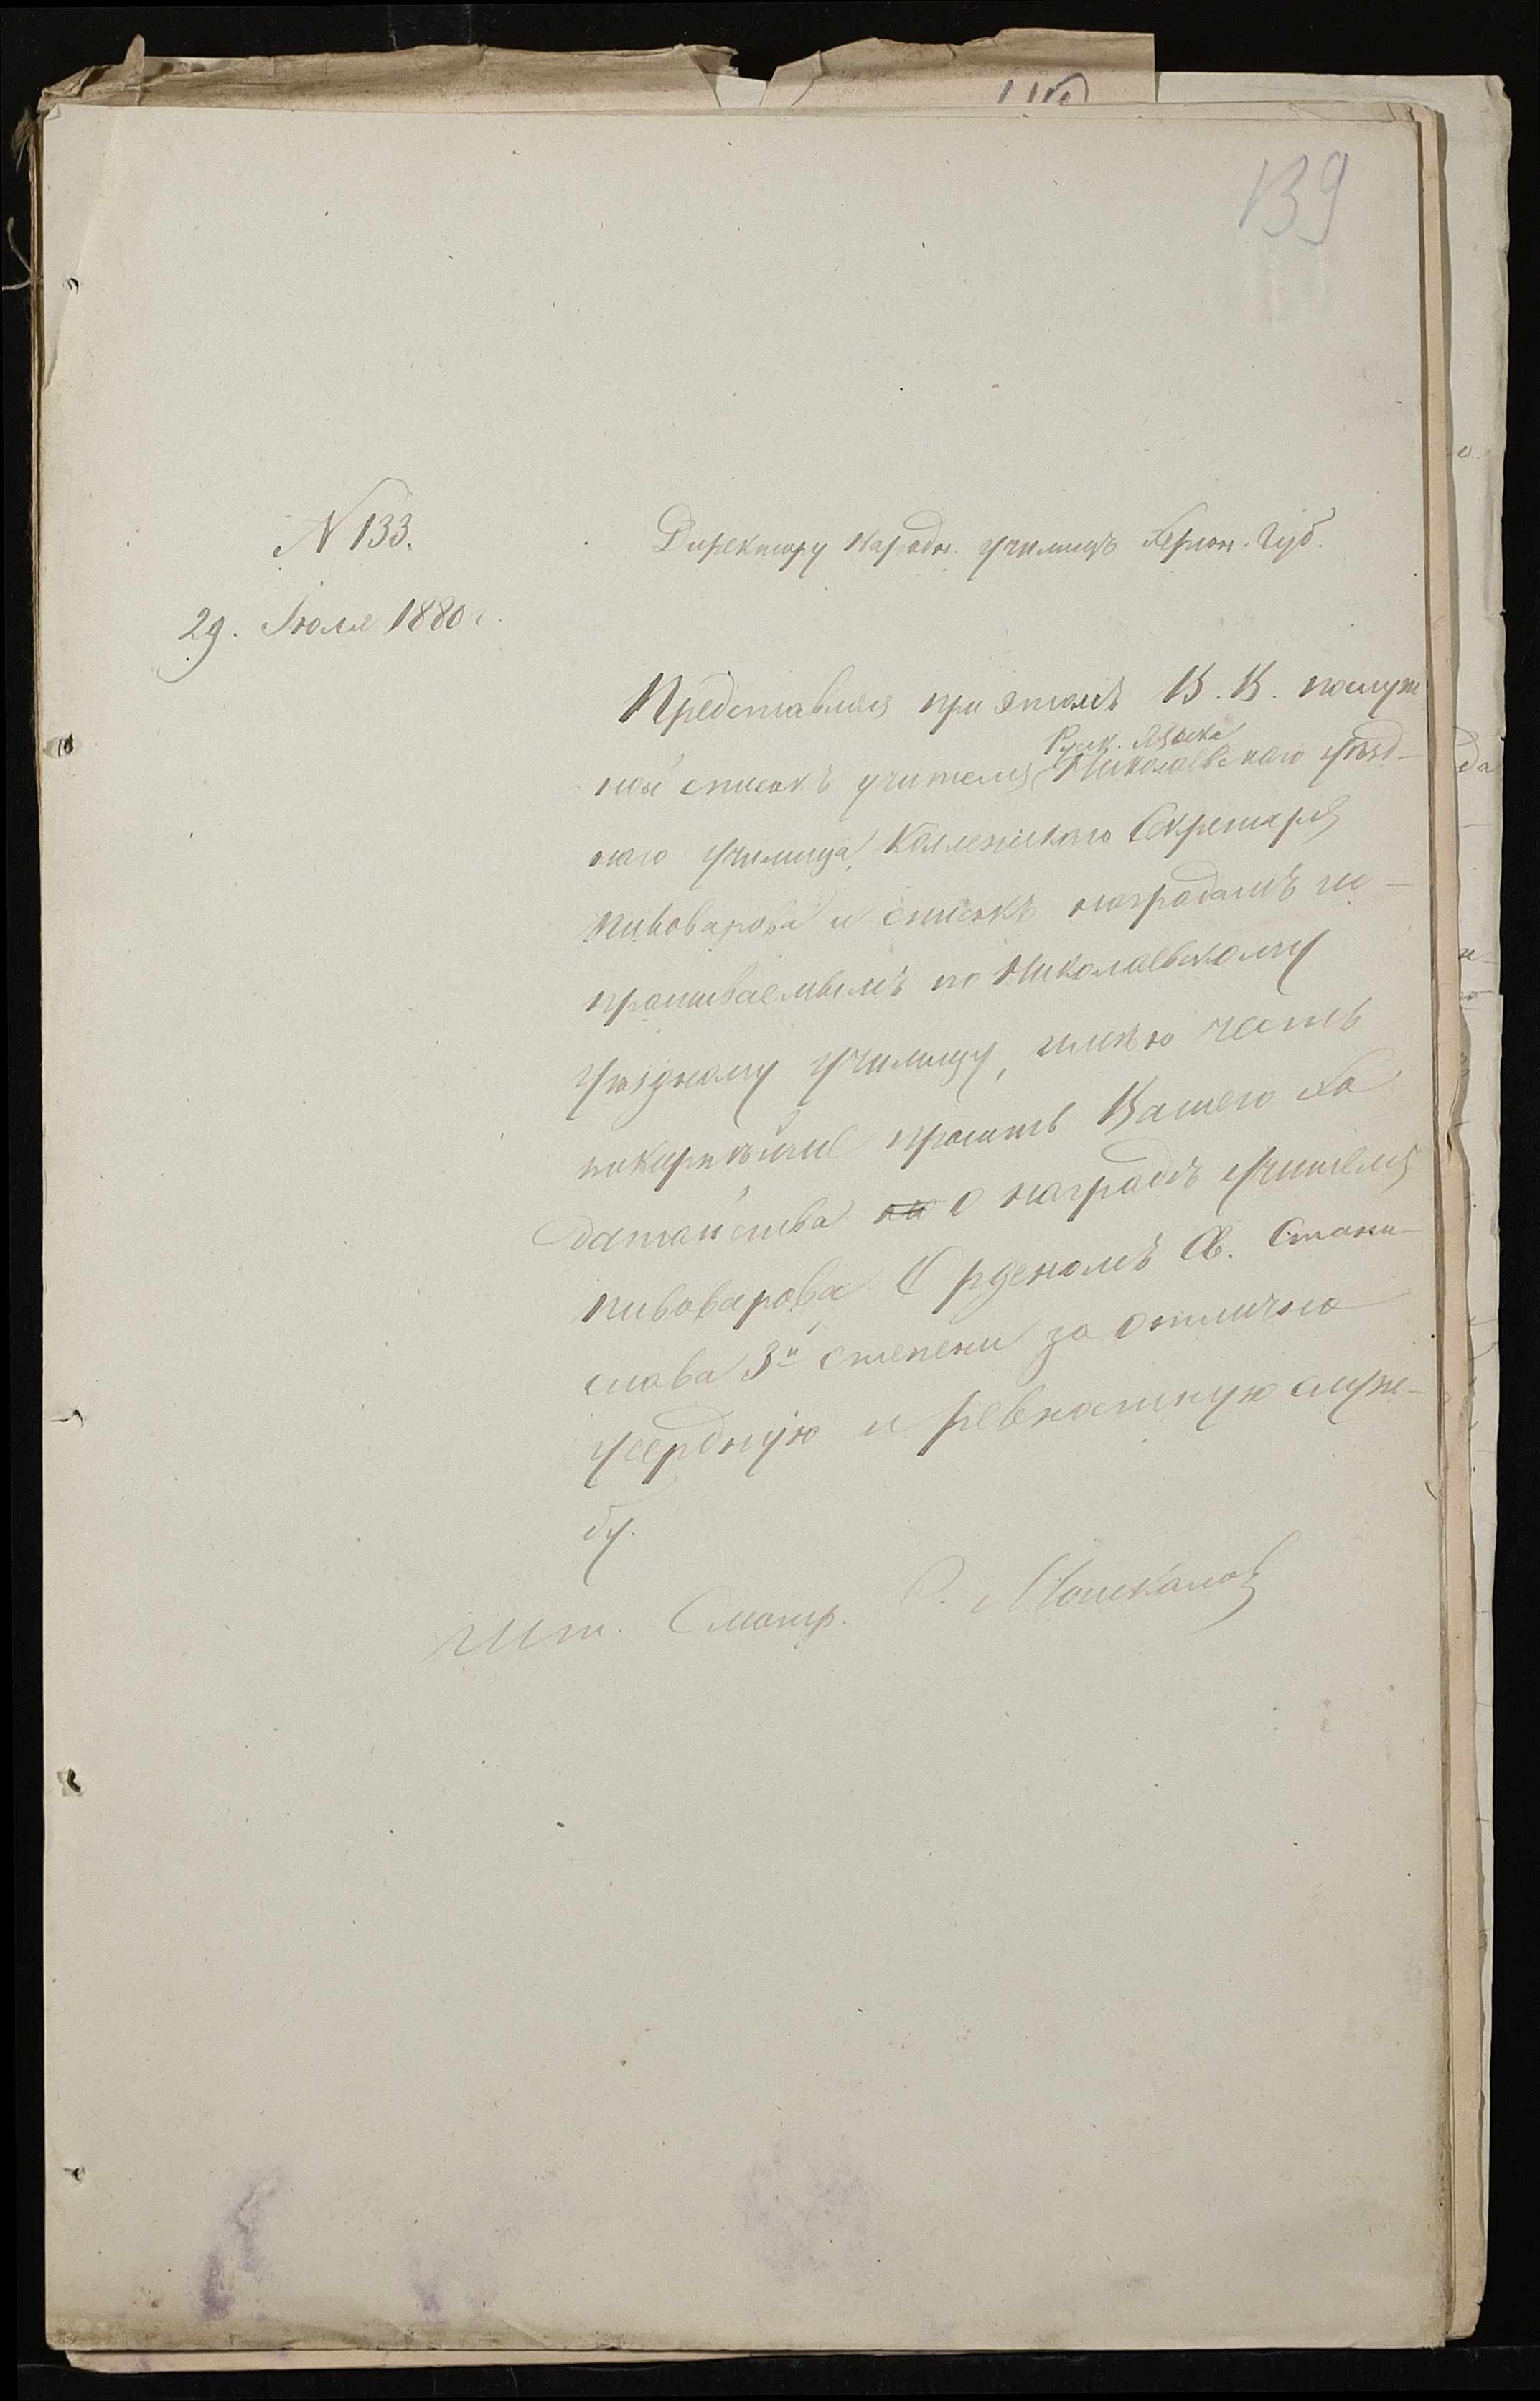 139
N 133.
Директору Народн. училищъ Херсон. Губ.
29. Июля 1880 г.
Представляя при этомъ В. В. послуж
Русск. языка
ной списокъ учителя Николаевскаго уѣзд-
наго училища, Коллежскаго Секретаря
Пивоварова и списокъ наградамъ ис-
прашиваемымъ по Николаевскому
уѣздному училищу, имѣю честь
покорнѣйше просить Вашего хо
датайства о наградѣ учителя
Пивоварова Орденомъ Св. Стани-
слава 3й степени за отлично
усердную и ревностную служ-
бу.
Шт. Смотр. С. Москалов